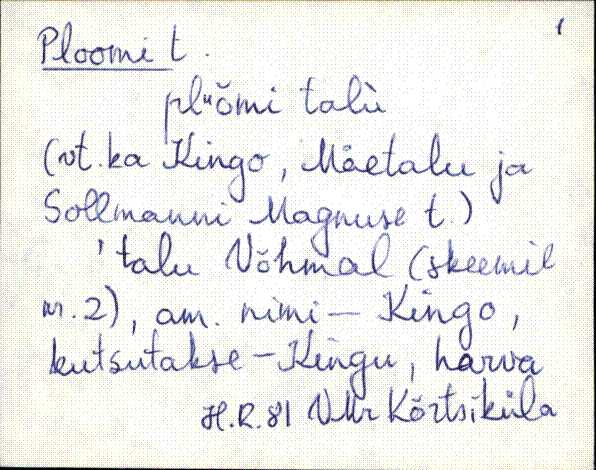 1
Ploomi t.
plᵘõmi talù
(vt. ka Kingo, Mäetalu ja
Sollmanni Magnuse t.)
' talu Võhmal (skeemil
nr. 2), am. nimi — Kingo,
kutsutakse – Kingu, harva
H.R. 81 VMr Kõrtsiküla